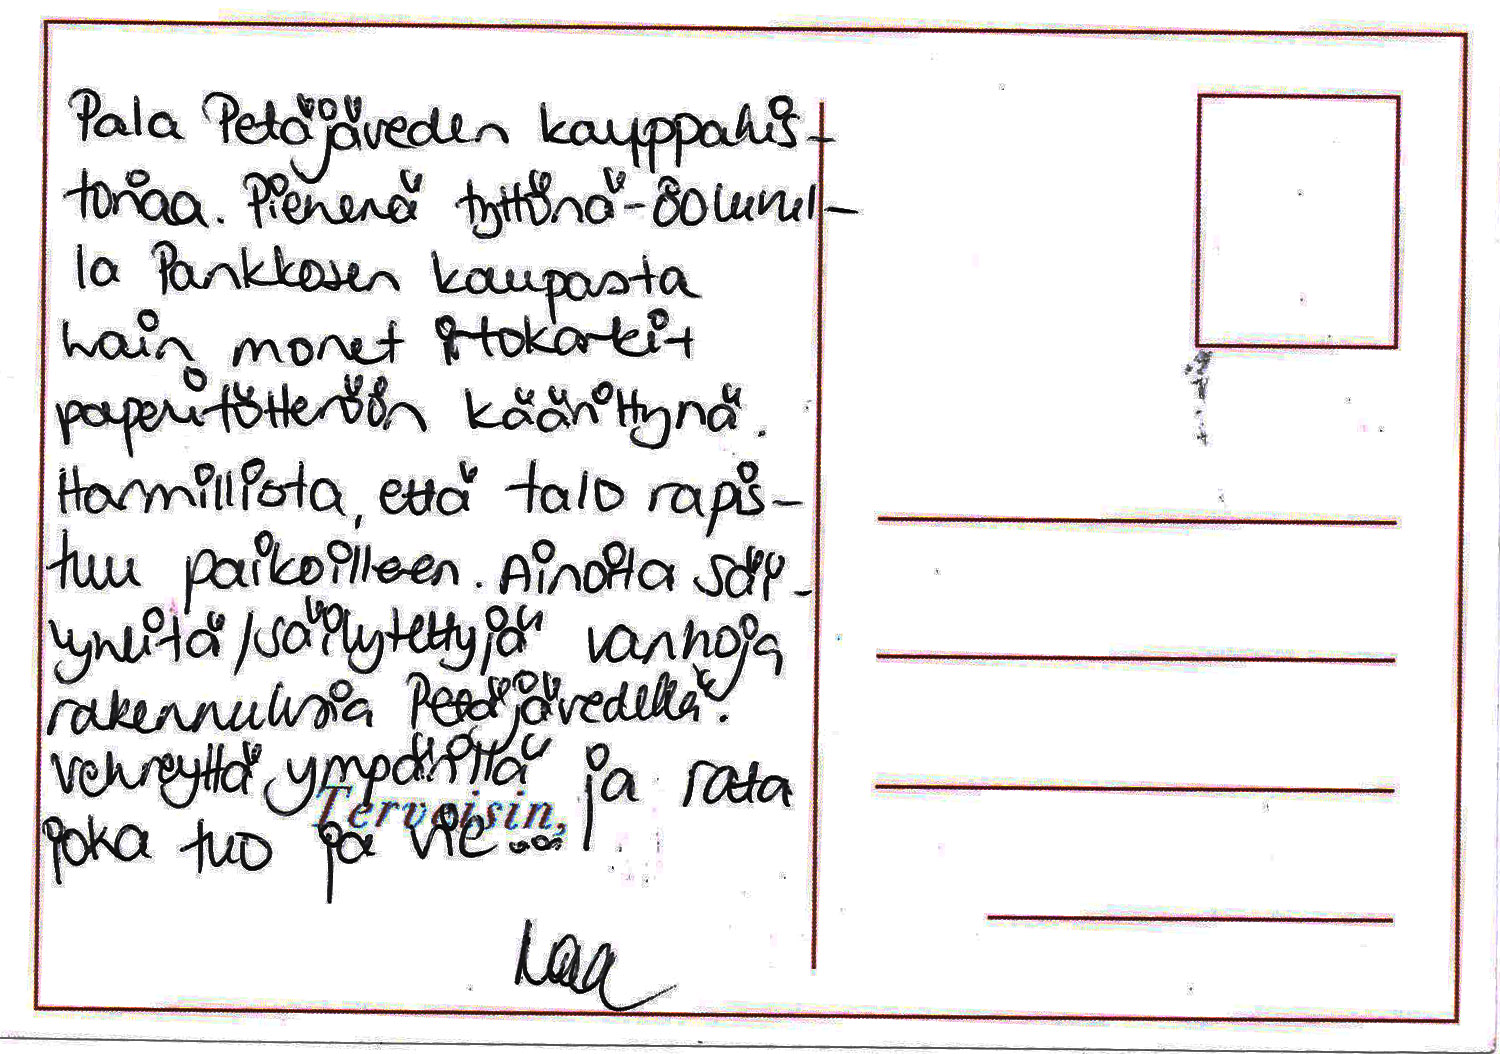 Pala Petäjäveden kauppahis-
toriaa. Pienenä tyttönä -80 luvul-
la Pankkosen kaupasta
hain monet irtokarkit
paperitötteröön käärittynä.
Harmillista, että talo rapis-
tuu paikoilleen. Ainoita säi-
lyneitä/säilytettyjä vanhoja
rakennuksia Petäjävedellä.
Vehreyttä ympärillä ja rata
Terveisin,
joka tuo ja vie...